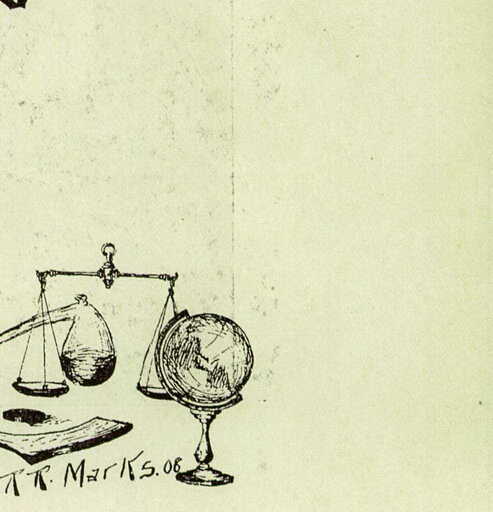 R. R. Marks. 08